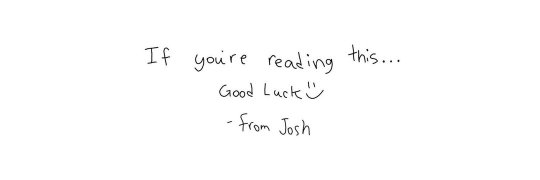 If you're reading this...
Good Luck :)
- from Josh